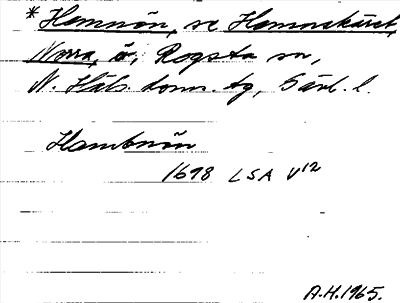 * Hamnön, se Hamnskäret,
Norra, ö, Rogsta sn,
N. Häls. doms. tg, Gävl. l.
Hambnön
1698 LSA V12
A.H. 1965.